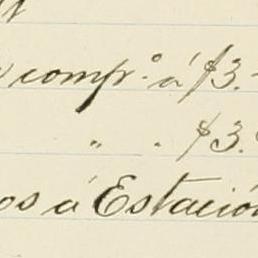 comp.º á $3.
" . $3.
os á Estación